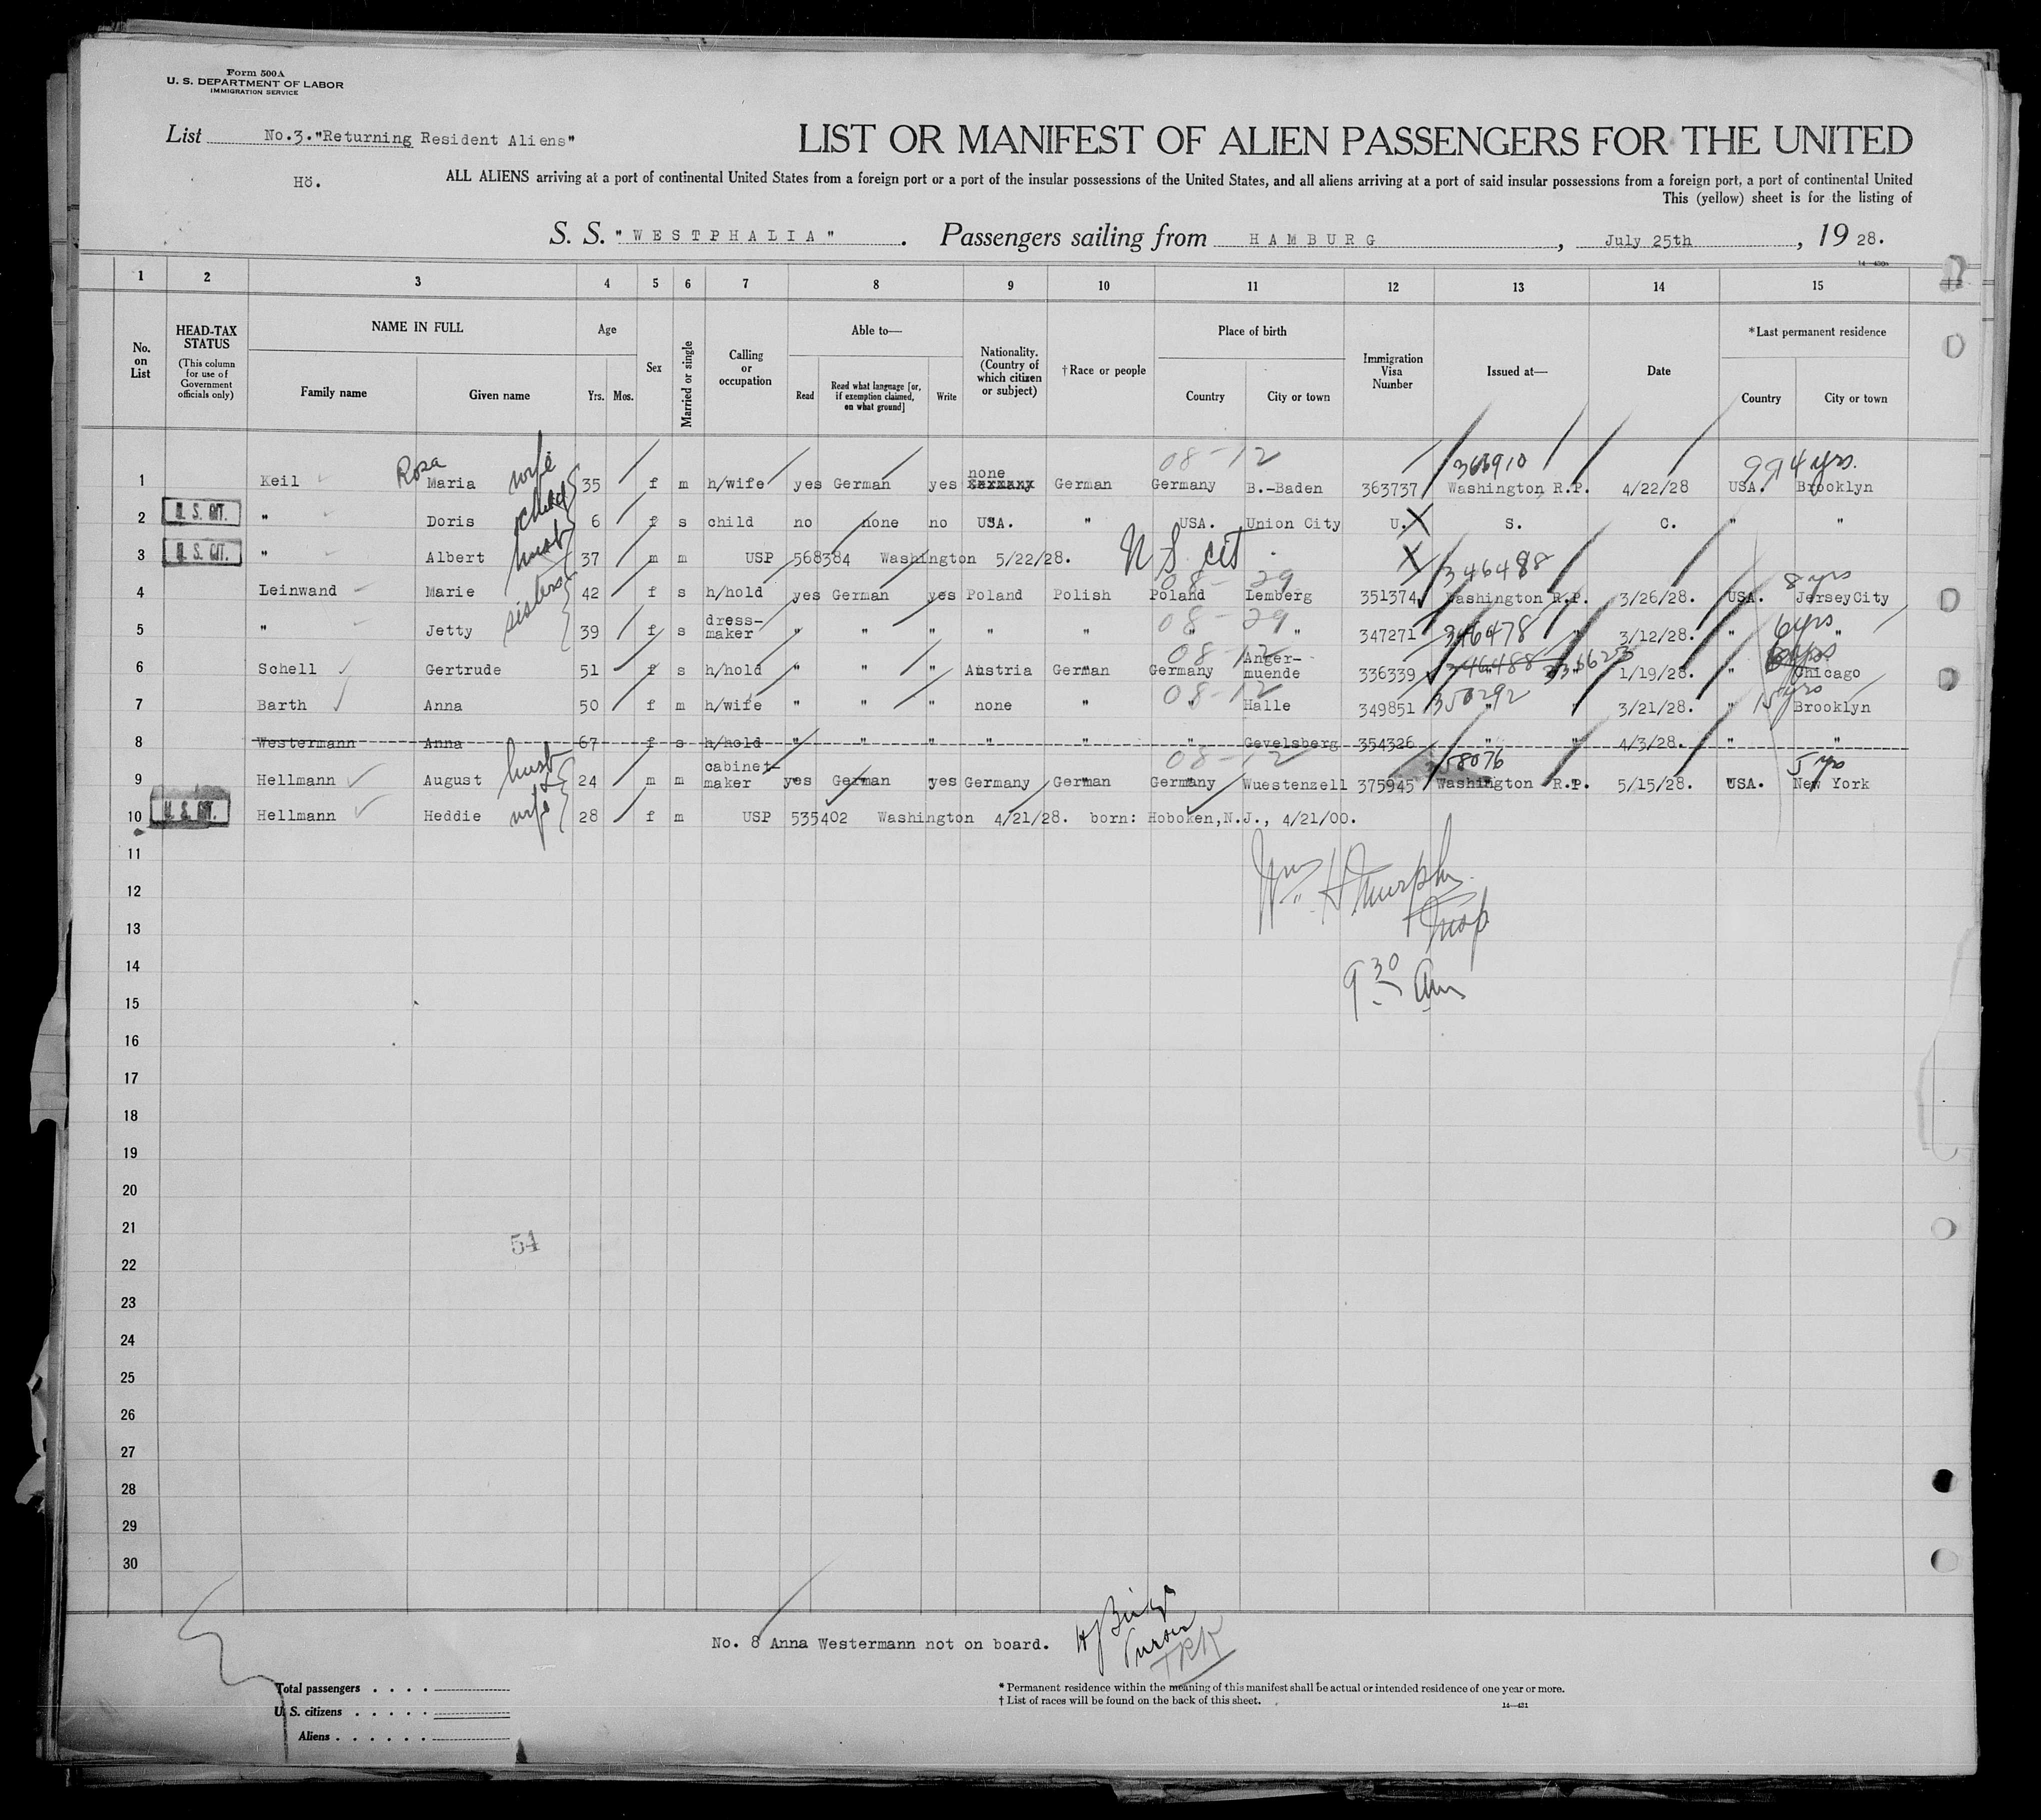 Form 500A
U. S. DEPARTMENT OF LABOR
IMMIGRATION SERVICE
List No.3."Returning Resident Aliens"
Hö.
LIST OR MANIFEST OF ALIEN PASSENGERS FOR THE UNITED
ALL ALIENS arriving at a port of continental United States from a foreign port or a port of the insular possessions of the United States, and all aliens arriving at a port of said insular possessions from a foreign port, a port of continental United
This (yellow) sheet is for the listing of
S. S. "WESTPHALIA". Passengers sailing from HAMBURG, July 25th, 1928.
1 2 3 4 5 6 7 8 9 10 11 12 13 14 15
No. on List
HEAD-TAX STATUS
(This column for use of Government officials only)
NAME IN FULL
Family name Given name
Age
Yrs. Mos.
Sex
Married or single
Calling or occupation
Able to—
Read Read what language [or, if exemption claimed, on what ground] Write
Nationality. (Country of which citizen or subject)
†Race or people
Place of birth
Country City or town
Immigration Visa Number
Issued at—
Date
*Last permanent residence
Country City or town
Rosa wife none 08-12 366910 4 yrs.
1 Keil Maria 35 f m h/wife yes German yes Germany German Germany B.-Baden 363737 Washington R.P. 4/22/28 USA. Brooklyn
child
2 U. S. CIT. " Doris 6 f s child no none no USA. " USA. Union City U. X S. C. " "
husb
3 U. S. CIT. " Albert 37 m m USP 568384 Washington 5/22/28. U S cit. X
346488 08-29 8 yrs
4 Leinwand Marie 42 f s h/hold yes German yes Poland Polish Poland Lemberg 351374 Washington R.P. 3/26/28. USA. JerseyCity
sisters 08-29 346478 6 yrs
5 " Jetty 39 f s dress-maker " " " " " " " 347271 " " 3/12/28. " "
08-12 346488
6 Schell Gertrude 51 f s h/hold " " " Austria German Germany Anger-muende 336339 " " 1/19/28. " Chicago
08-12 350292 15 yrs
7 Barth Anna 50 f m h/wife " " " none " " Halle 349851 " " 3/21/28. " Brooklyn
8 Westermann Anna 67 f s h/hold " " " " " " Gevelsberg 354326 " " 4/3/28. " "
husb & 08-12 358076 5 yrs
9 Hellmann August 24 m m cabinet-maker yes German yes Germany German Germany Wuestenzell 375945 Washington R.P. 5/15/28. USA. New York
wife
10 U. S. CIT. Hellmann Heddie 28 f m USP 535402 Washington 4/21/28. born: Hoboken,N.J., 4/21/00.
11
Wm. H Murphy
12
Insp
13
14
9 30 Am
15
16
17
18
19
20
21
54
22
23
24
25
26
27
28
29
30
No. 8 Anna Westermann not on board.
Purser
Total passengers . . . .
U. S. citizens . . . . .
Aliens . . . . . .
*Permanent residence within the meaning of this manifest shall be actual or intended residence of one year or more.
†List of races will be found on the back of this sheet.
14—421